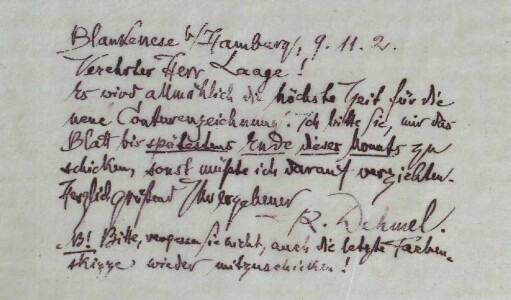 Blankenese b/Hamburg, 9. 11. 2.
Verehrter Herr Laage!
Es wird allmählich die höchste Zeit für die
neue Conturenzeichnung. Ich bitte Sie, mir das
Blatt bis spätestens Ende dieses Monats zu
schicken, sonst müßte ich darauf verzichten.
Herzlich grüßend Ihr ergebener
R. Dehmel.
NB! Bitte, vergessen Sie nicht, auch die letzte Farben-
skizze wieder mitzuschicken!